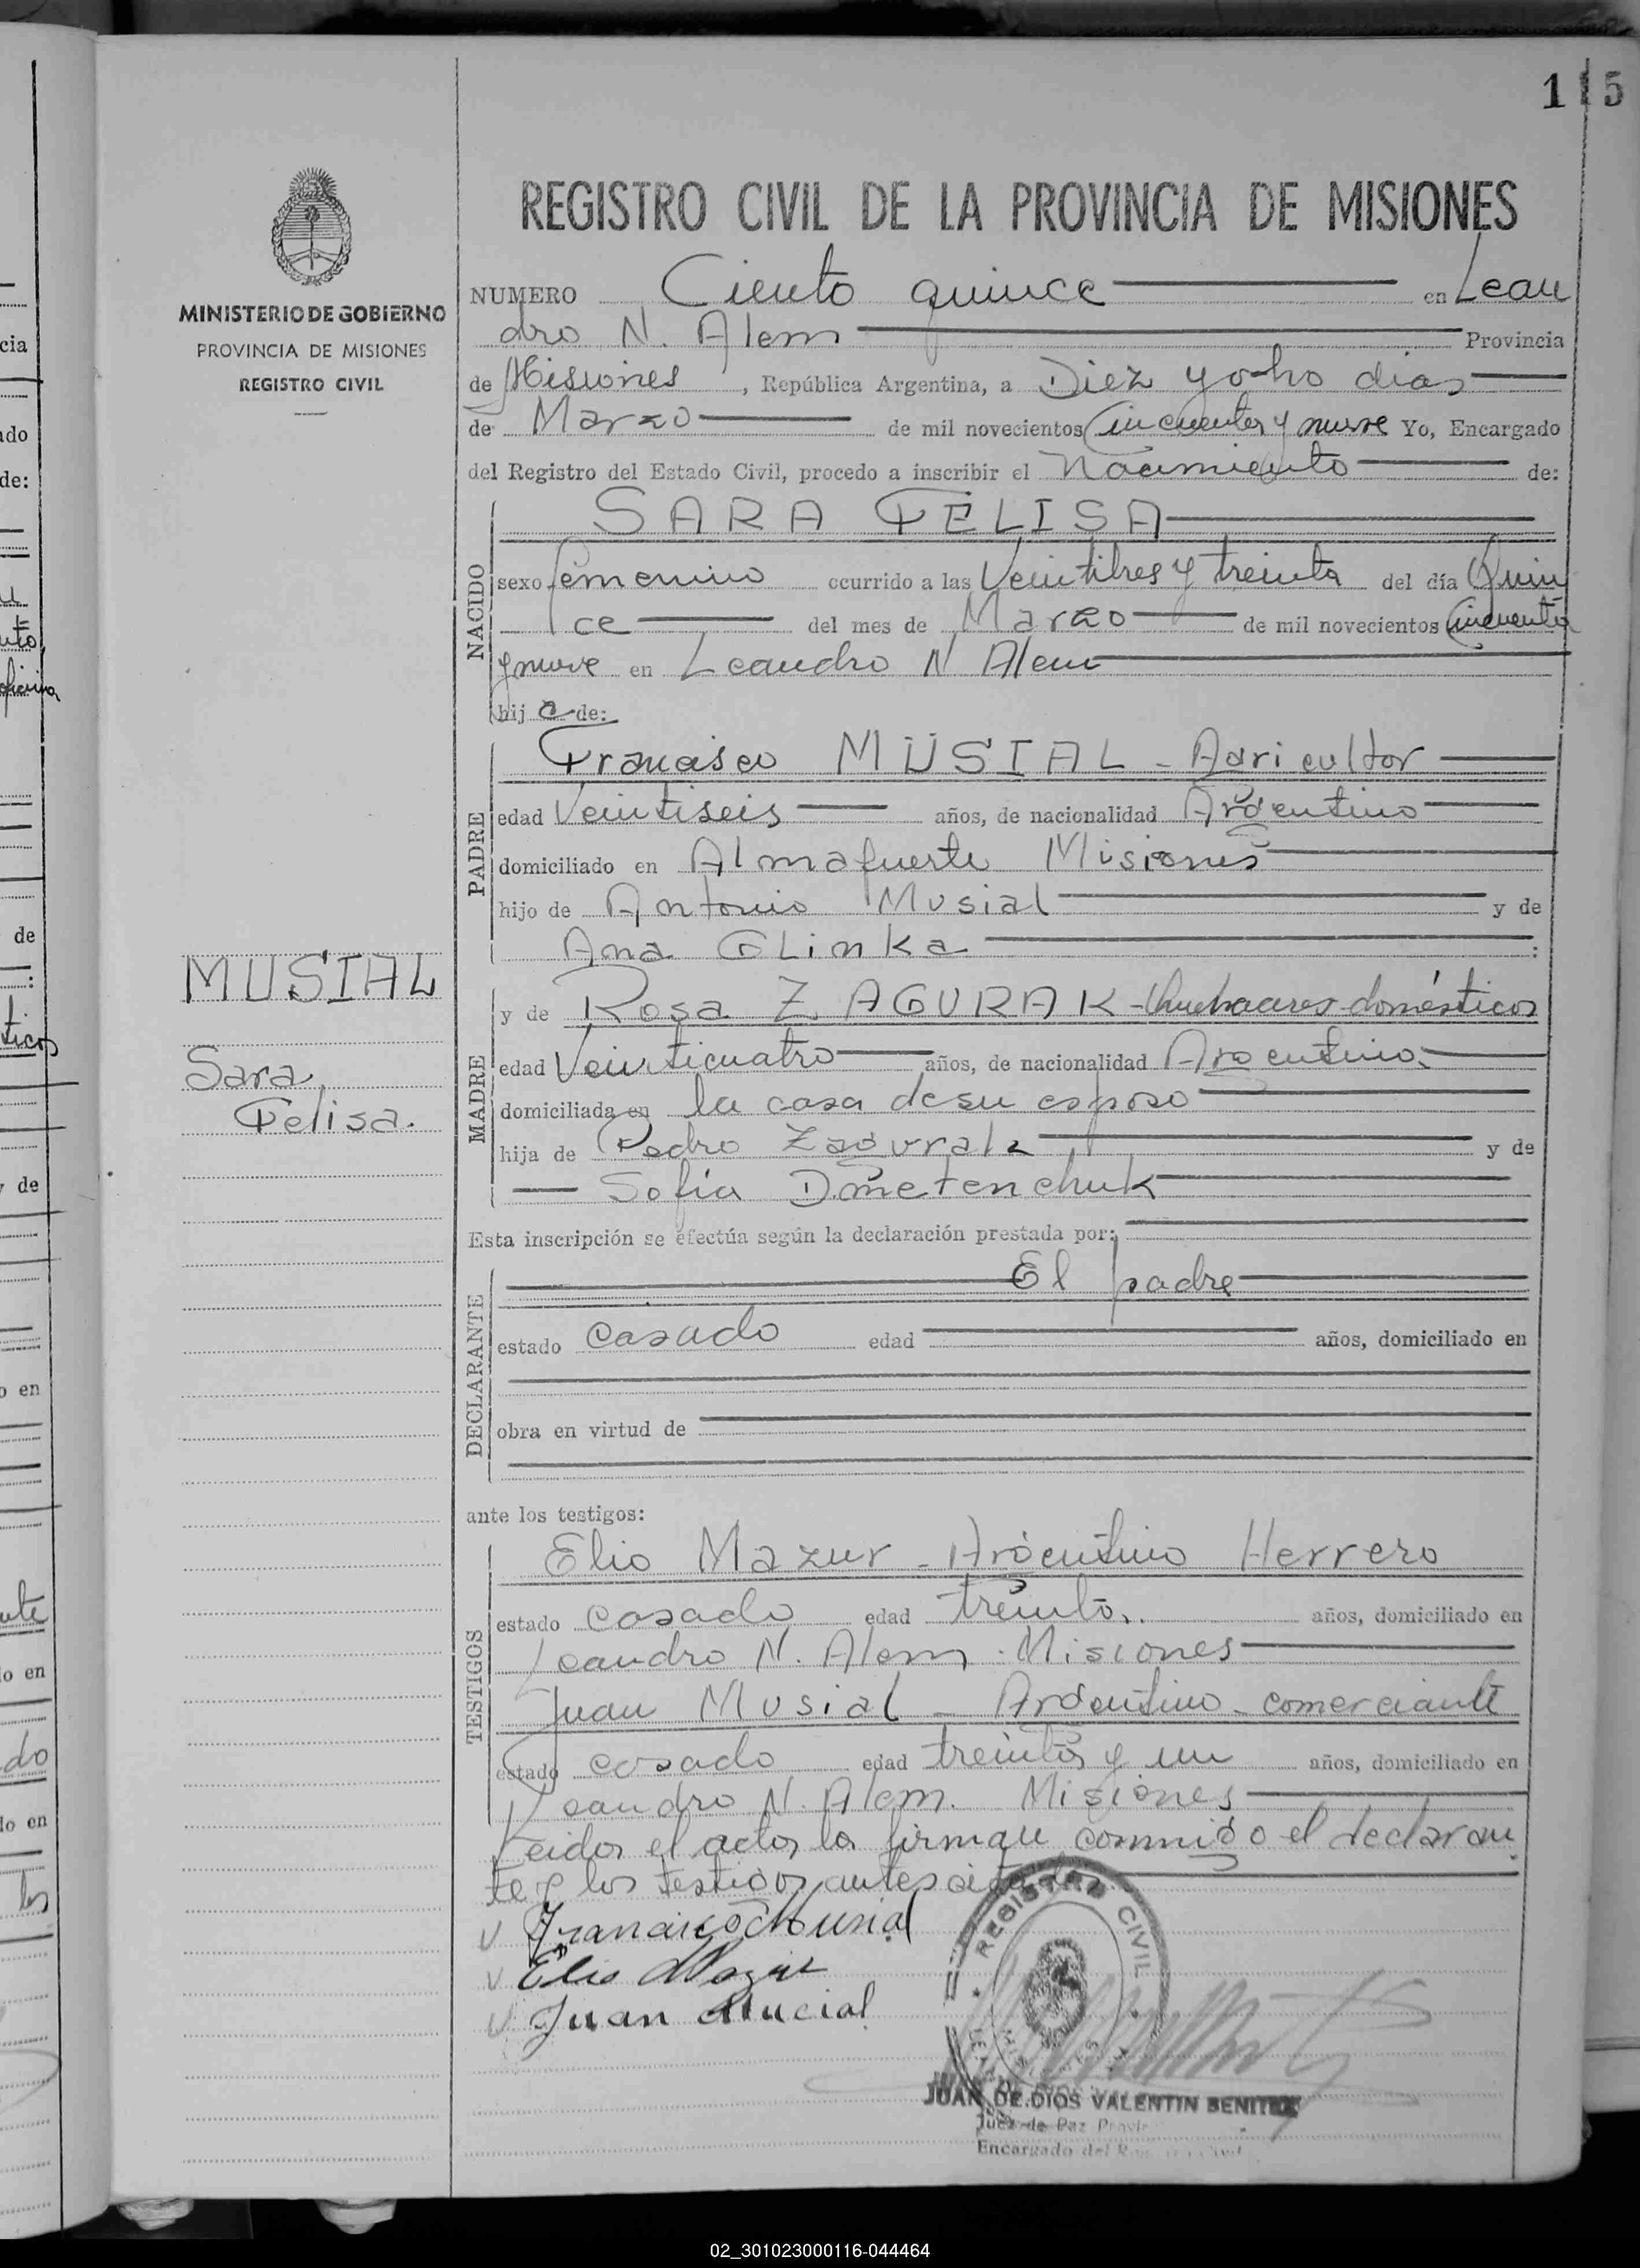 115
REGISTRO CIVIL DE LA PROVINCIA DE MISIONES
MINISTERIO DE GOBIERNO
PROVINCIA DE MISIONES
REGISTRO CIVIL
MUSIAL
Sara
Felisa.
NUMERO Ciento quince en Lean
dro N. Alem Provincia
de Misiones, República Argentina, a Diez y ocho dias
de Marzo de mil novecientos Cincuenta y nueve Yo, Encargado
del Registro del Estado Civil, procedo a inscribir el Nacimiento de:
SARA FELISA
NACIDO
sexo femenino ocurrido a las Veintitres y treinta del día Quin
ce del mes de Marzo de mil novecientos Cincuenta
y nueve en Leandro N Alem
hij a de:
PADRE
Francisco MUSIAL - Agricultor
edad Veintiseis años, de nacionalidad Argentino
domiciliado en Almafuerte Misiones
hijo de Antonio Musial y de
Ana Glinka :
MADRE
y de Rosa ZAGURAK - Quehaceres domésticos
edad Veinticuatro años, de nacionalidad Argentina
domiciliada en la casa de su esposo
hija de Pedro Zagurak y de
Sofia Dmetenchuk
Esta inscripción se efectúa según la declaración prestada por:
DECLARANTE
El padre
estado casado edad años, domiciliado en
obra en virtud de
ante los testigos:
TESTIGOS
Elio Mazur - Argentino Herrero
estado casado edad treinta años, domiciliado en
Leandro N. Alem - Misiones
Juan Musial - Argentino - comerciante
estado casado edad treinta y un años, domiciliado en
Leandro N. Alem. Misiones
Leida el acta la firman conmigo el declaran
te y los testigos antes citados
Francisco Musial
Elio Mazur
Juan Mucial
REGISTRO CIVIL
JUAN DE DIOS VALENTIN BENITEZ
Juez de Paz
Encargado del
02_301023000116-044464